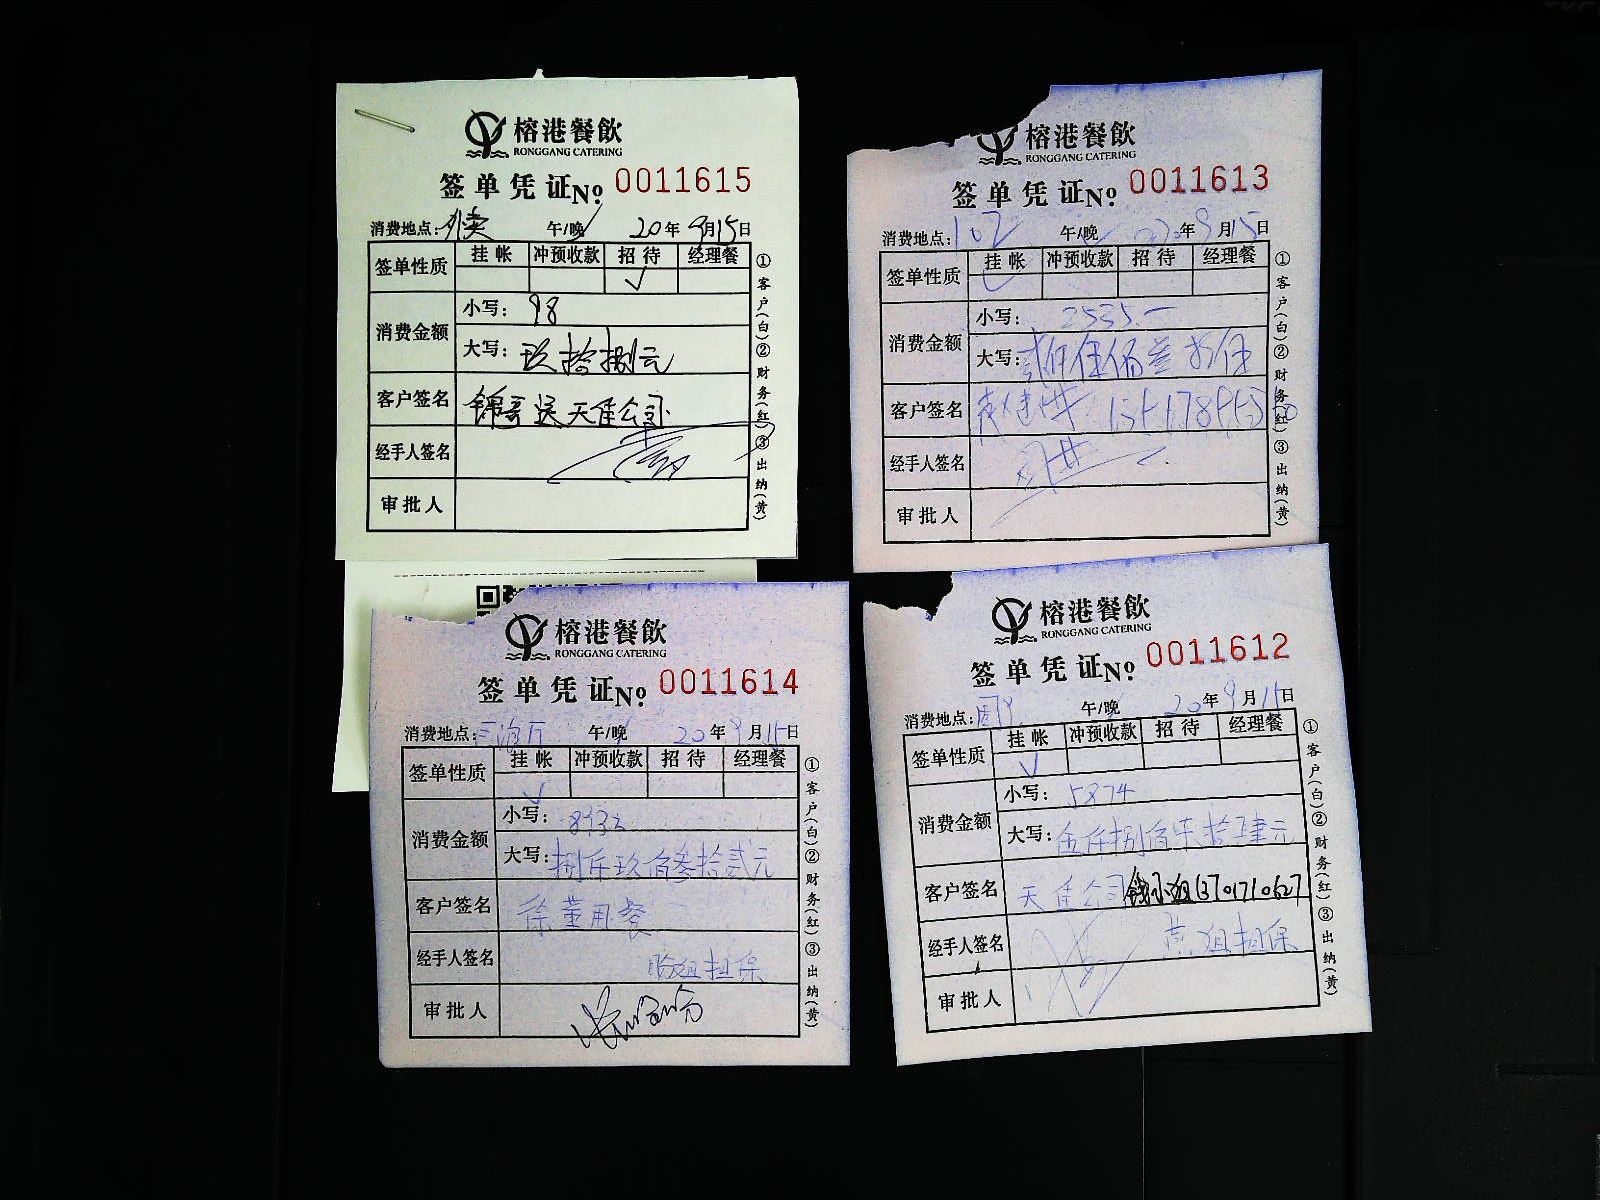 榕港餐飲
RONGGANG CATERING
签单凭证No. 0011615
消费地点：外卖 午/晚 20年9月15日
签单性质 挂帐 冲预收款 招待 经理餐
√
消费金额 小写：98
大写：玖拾捌元
客户签名 锦哥送天佳公司
经手人签名
审批人
①客户(白)②财务(红)③出纳(黄)
榕港餐飲
RONGGANG CATERING
签单凭证No. 0011613
消费地点：107 午/晚 20年9月15日
签单性质 挂帐 冲预收款 招待 经理餐
√
消费金额 小写：2535.一
大写：贰仟伍佰叁拾伍
客户签名
经手人签名
审批人
①客户(白)②财务(红)③出纳(黄)
榕港餐飲
RONGGANG CATERING
签单凭证No. 0011614
消费地点： 午/晚 20年9月15日
签单性质 挂帐 冲预收款 招待 经理餐
√
消费金额 小写：8932
大写：捌仟玖佰叁拾贰元
客户签名 徐董用餐
经手人签名 担保
审批人
①客户(白)②财务(红)③出纳(黄)
榕港餐飲
RONGGANG CATERING
签单凭证No. 0011612
消费地点： 午/晚 20年9月15日
签单性质 挂帐 冲预收款 招待 经理餐
√
消费金额 小写：5874
大写：伍仟捌佰柒拾肆元
客户签名 天佳公司钱小姐13701710627
经手人签名 姐担保
审批人
①客户(白)②财务(红)③出纳(黄)